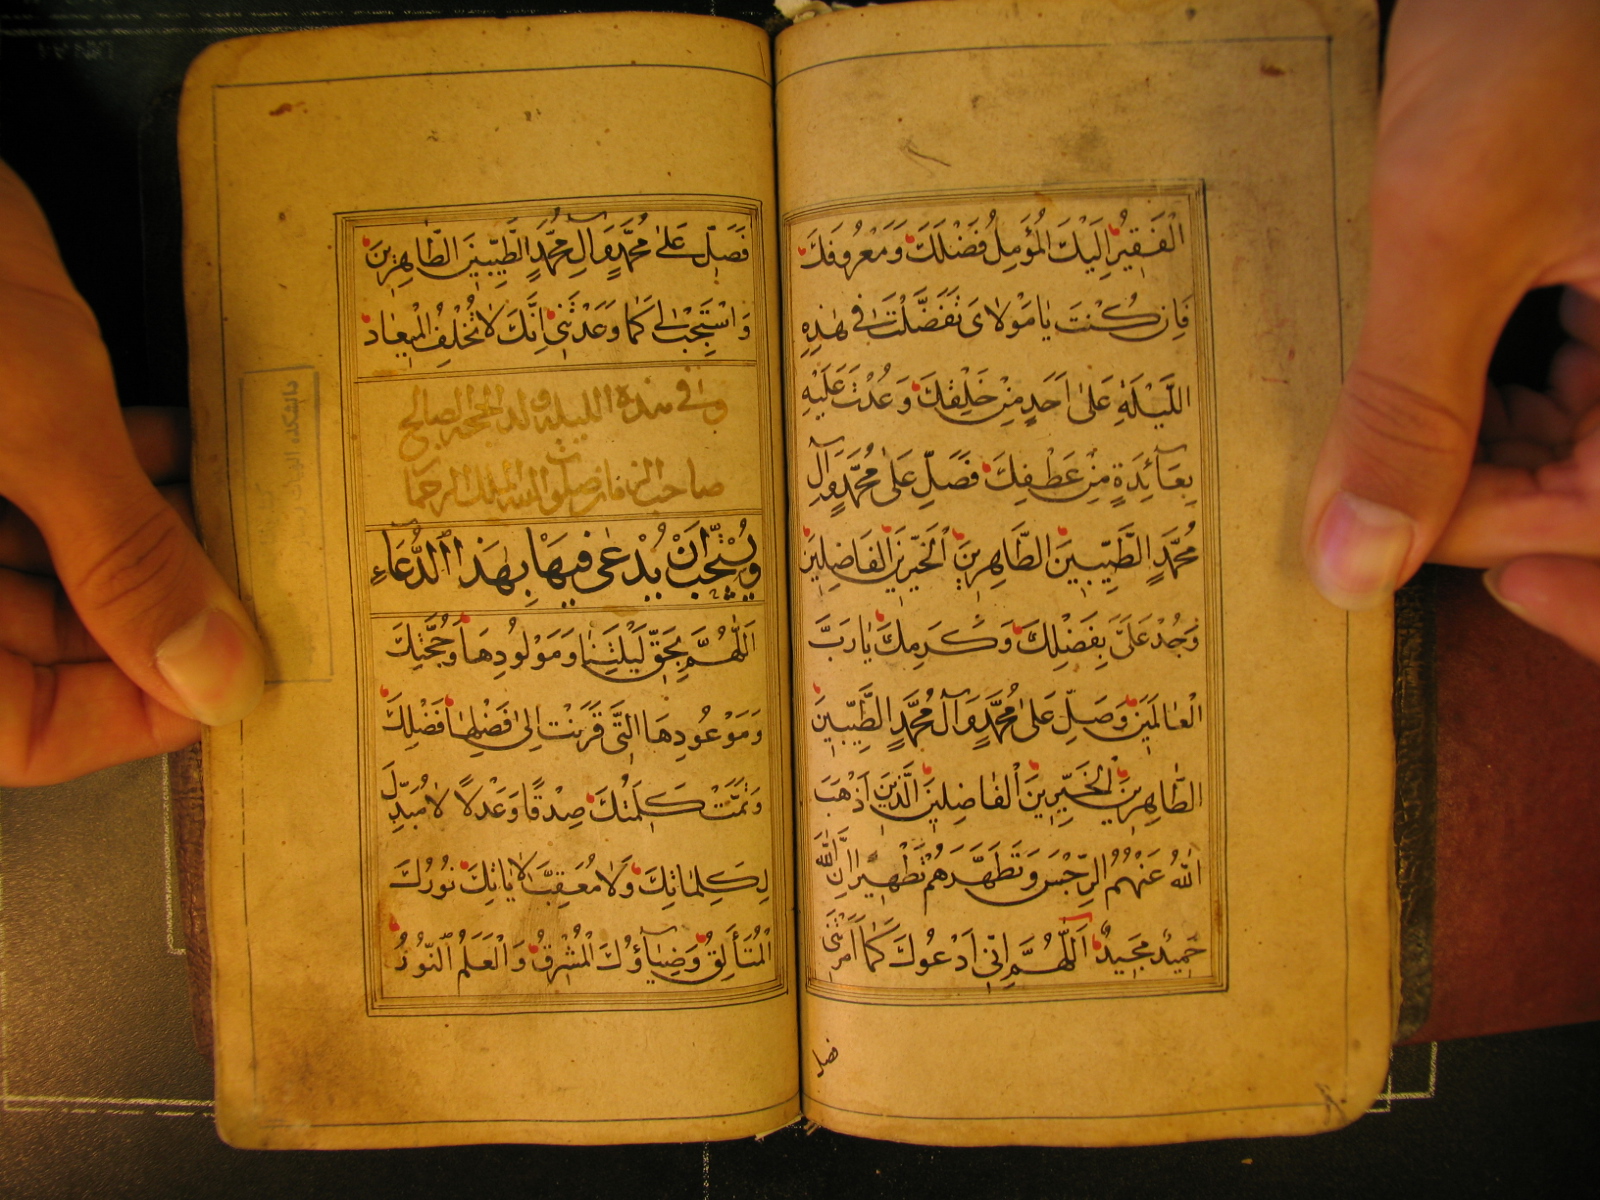 الْفَقِيرُ اِلَيْكَ الْمُؤَمِلُ فَضْلَكَ وَمَعْرُوفَكَ
فَاِن كُنْتَ يَا مَوْلاىَ تَفَضَّلْتَ فى هٰذِهِ
اللَّيْلَةِ عَلى اَحَدٍ مِنْ خَلْقِكَ وَعُدْتَ عَلَيْهِ
بِعَآئِدَةٍ مِنْ عَطْفِكَ فَصَلِّ عَلى مُحَمَّدٍ وَآلِ
مُحَمَّدٍ الطَّيِّبِينَ الطَّاهِرِينَ الْخَيِّرِينَ الفَاضِلِينَ
وَجُدْ عَلَىَّ بِفَضْلِكَ وَكَرَمِكَ يَا رَبَّ
الْعَالَمِينَ وَصَلِّ عَلى مُحَمَّدٍ وَآلِ مُحَمَّدٍ الطَّيِّبِينَ
الطَّاهِرِينَ الْخَيِّرِينَ الْفَاضِلِينَ الَّذِينَ اَذْهَبَ
اللهُ عَنْهُمُ الرِّجْسَ وَتَطَهَّرَهُمْ تَطْهِيرًا اِنَّ اللهَ
حَمِيدٌ مَجِيدٌ اَللّٰهُمَّ اِنّى اَدْعُوكَ كَمَا اَمَرْتَنى
فصل
فَصَلِّ عَلى مُحَمَّدٍ وَآلِ مُحَمَّدٍ الطَّيِّبِينَ الطَّاهِرِينَ
وَاسْتَجِبْ لى كَمَا وَعَدْتَنى اِنَّكَ لَا تُخْلِفُ الْمِيعَادَ
وفى هذه الليلة ولد الحجة الصالح
صاحب الزمان صلوات الله الملك الرحمان
وَيُسْتَحَبُّ اَنْ يُدْعٰى فِيهَا بِهٰذَا الدُّعَاءِ
اَللّٰهُمَّ بِحَقِّ لَيْلَتِنَا وَمَوْلُودِهَا وَحُجَّتِكَ
وَمَوْعُودِهَا الَّتى قَرَنْتَ اِلى فَضْلِهَا فَضْلَكَ
وَتَمَّتْ كَلِمَتُكَ صِدْقًا وَعَدْلًا لَا مُبَدِّلَ
لِكَلِمَاتِكَ وَلَا مُعَقِّبَ لِاٰيَاتِكَ نُورُكَ
الْمُتَأَلِّقُ وَضِيَآؤُكَ الْمُشْرِقُ وَالْعَلَمُ النُّورُ